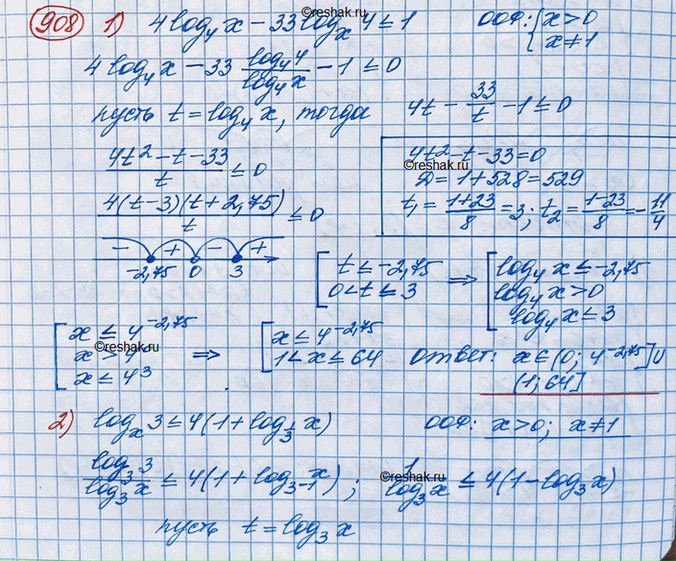 ©reshak.ru
908 1) 4 log₄ x − 33 logₓ 4 ≤ 1 ООФ: { x > 0
x ≠ 1
4 log₄ x − 33 log₄ 4 / log₄ x − 1 ≤ 0
пусть t = log₄ x, тогда 4t − 33/t − 1 ≤ 0
(4t² − t − 33) / t ≤ 0
4t² − t − 33 = 0
©reshak.ru
D = 1 + 528 = 529
t₁ = (1+23)/8 = 3; t₂ = (1−23)/8 = −11/4
4(t−3)(t+2,75) / t ≤ 0
− + − +
−2,75 0 3
[ t ≤ −2,75
0 < t ≤ 3
⇒ [ log₄ x ≤ −2,75
log₄ x > 0
log₄ x ≤ 3
[ x ≤ 4^(−2,75)
©reshak.ru
x ≤ 4³
⇒ [ x ≤ 4^(−2,75)
1 < x ≤ 64
Ответ: x ∈ (0; 4^(−2,75)] ∪
(1; 64]
2) logₓ 3 ≤ 4(1 + log_(1/3) x) ООФ: x > 0; x ≠ 1
log₃ 3 / log₃ x ≤ 4(1 + log_(3⁻¹) x); 1 / log₃ x ≤ 4(1 − log₃ x)
©reshak.ru
пусть t = log₃ x